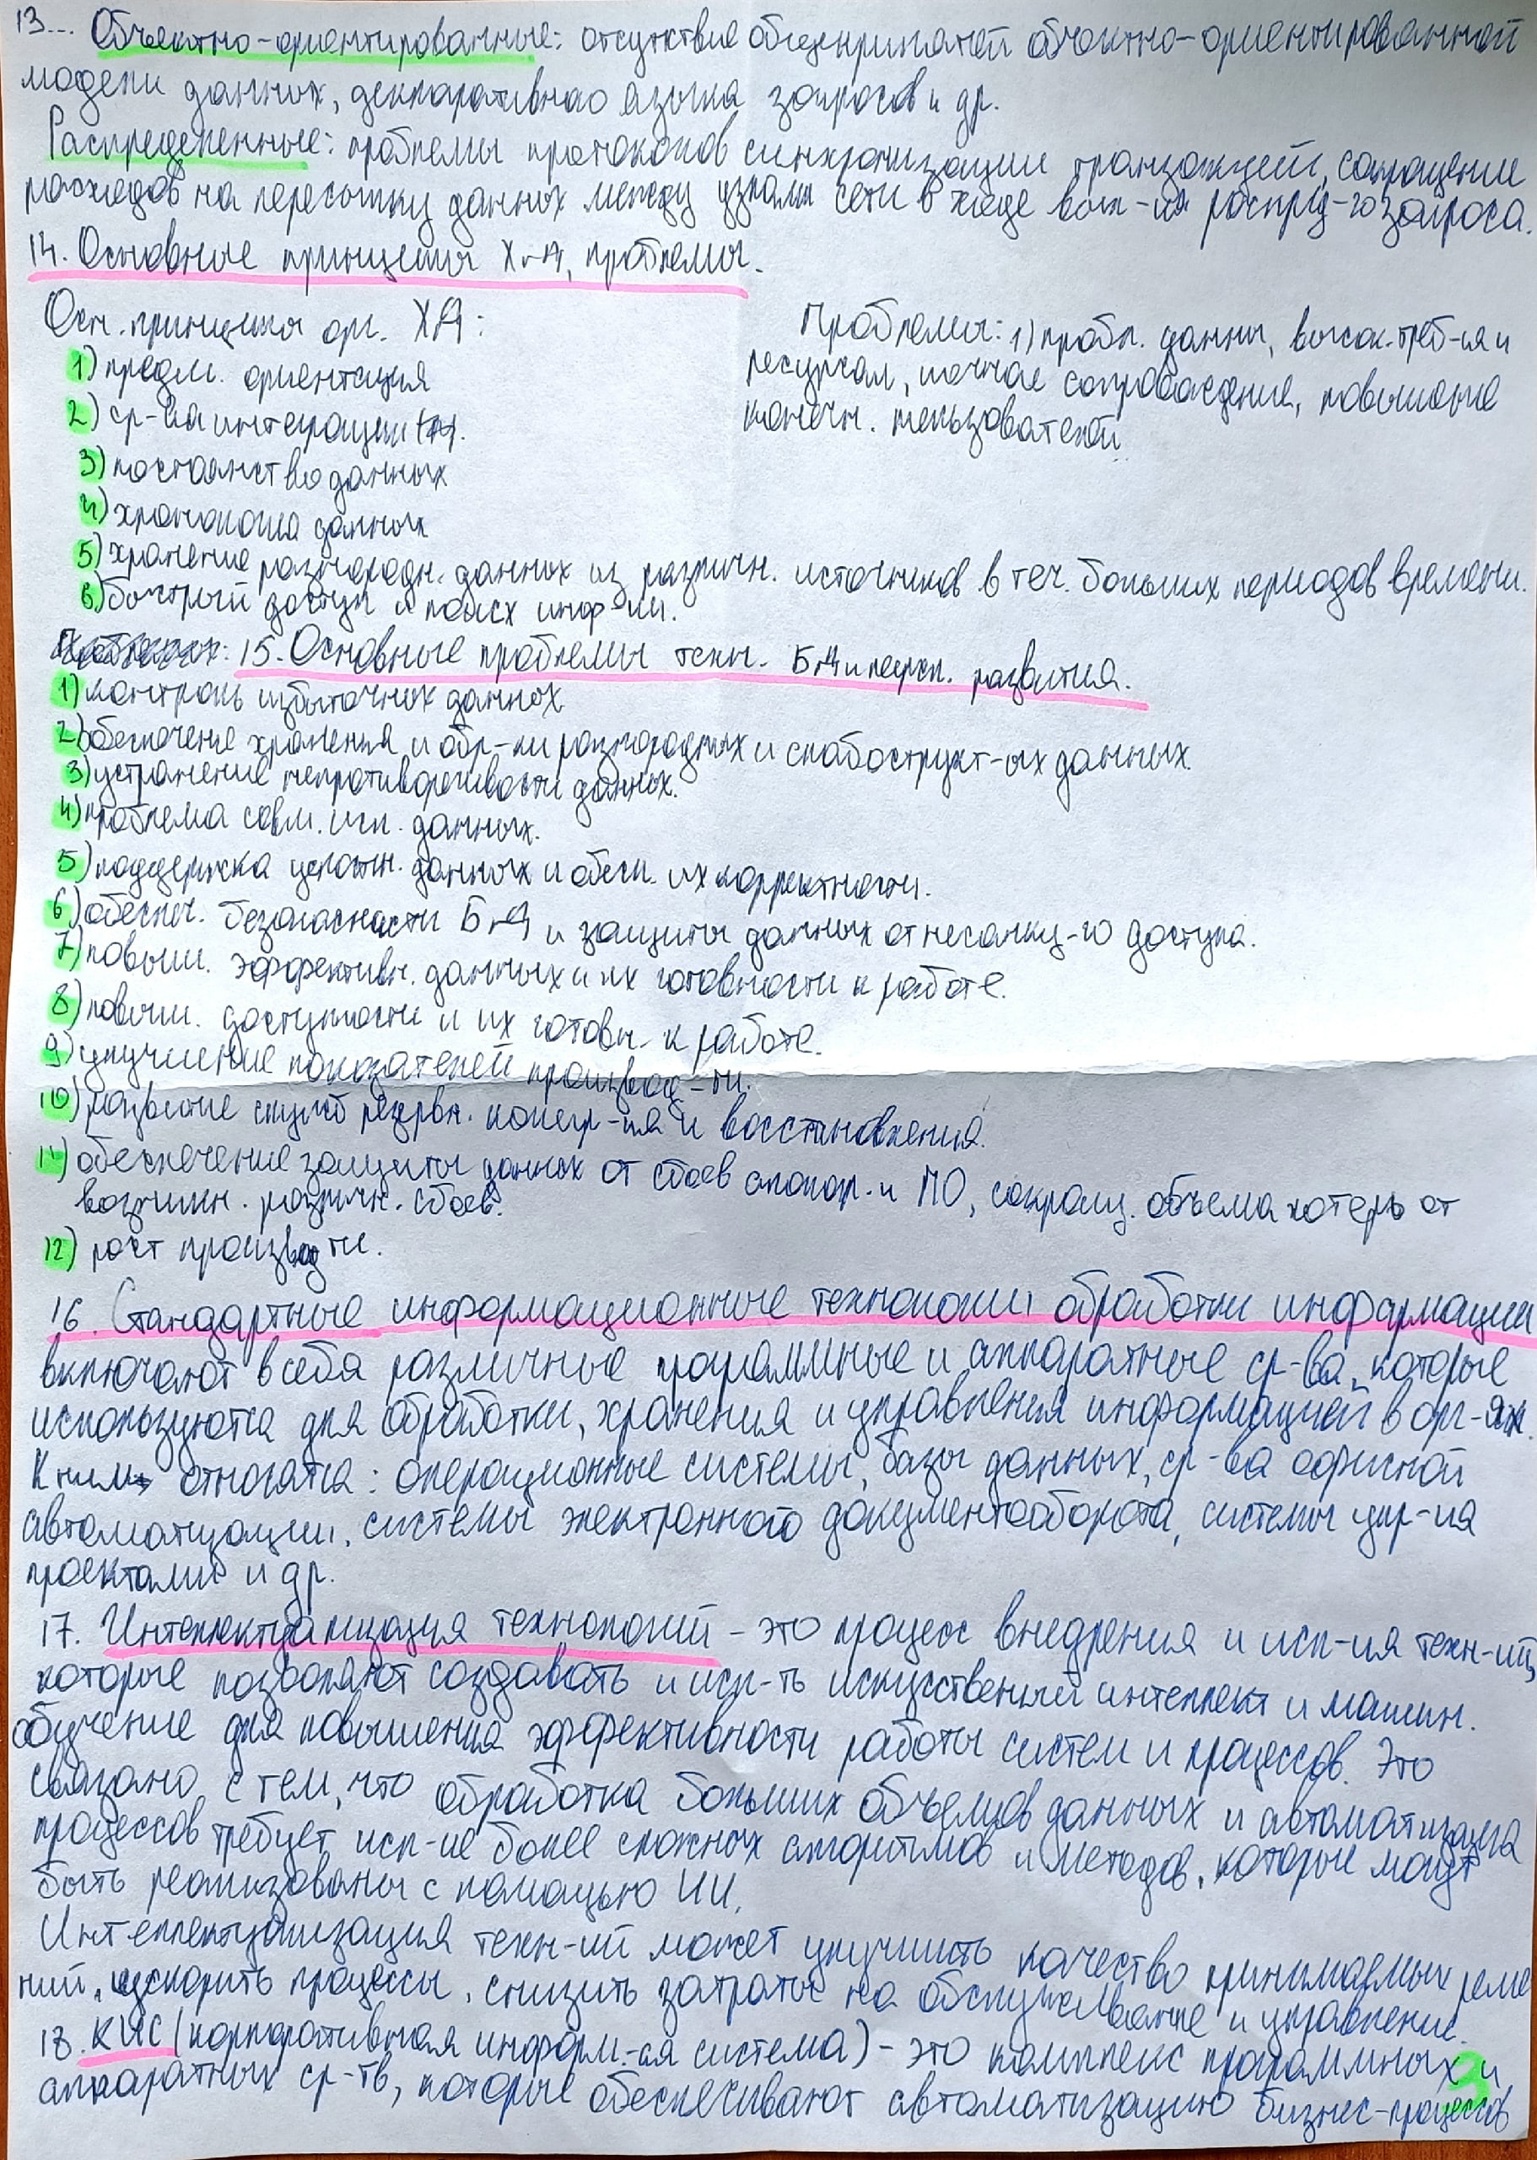 13... Объектно-ориентированные: отсутствие общепринятой объектно-ориентированной
модели данных, декларативнао языка запросов и др.
Распределенные: проблемы протоколов синхронизации транзакций, сокращение
расходов на пересылку данных между узлами сети в ходе вып-ия распред-го запроса.
14. Основные принципы ХД, проблемы.
Осн. принципы орг. ХД:
1) предм. ориентация
2) ср-ва интеграции
3) постоянство данных
4) хронология данных
5) хранение разнородн. данных из различн. источников в теч. больших периодов времени.
6) быстрый доступ и поиск инф-ии.
Проблемы: 1) пробл. данны, высок. треб-ия и
ресурсам, сопровождение, повышение
конечн. пользователей
15. Основные проблемы техн. БД и персп. развития.
1) контроль избыточных данных
2) обеспечение хранения и обр-ки разнородных и слабострукт-ых данных.
3) устранение непротиворечивости данных.
4) проблема совм. исп. данных.
5) поддержка целостн. данных и обесп. их корректности.
6) обеспеч. безопасности БД и защиты данных от несанкц-го доступа.
7) повыш. эффективн. данных и их готовности к работе.
8) повыш. доступности и их готовн. к работе.
9) улучшение показателей производ-ти.
10) развитие служб резервн. копир-ия и восстановления.
11) обеспечение защиты данных от сбоев аппар. и ПО, сокращ. объема потерь от
возникн. различн. сбоев.
12) рост производ ти.
16. Стандартные информационные технологии обработки информации
включают в себя различные программные и аппаратные ср-ва, которые
используются для обработки, хранения и управления информацией в орг-ях.
К ним относятся: операционные системы, базы данных, ср-ва офисной
автоматизации, системы электронного документооборота, системы упр-ия
проектами и др.
17. Интеллектуализация технологий - это процесс внедрения и исп-ия техн-ий,
которые позволяют создавать и исп-ть искусственный интеллект и машин.
обучение для повышения эффективности работы систем и процессов. Это
связано с тем, что обработка больших объемов данных и автоматизация
процессов требует исп-ие более сложных алгоритмов и методов, которые могут
быть реализованы с помощью ИИ.
Интеллектуализация техн-ий может улучшить качество принимаемых реше
ний, ускорить процессы, снизить затраты на обслуживание и управление.
18. КИС (корпоративная информ.-ая система) - это комплекс программных и
аппаратных ср-тв, которые обеспечивают автоматизацию бизнес-процессов